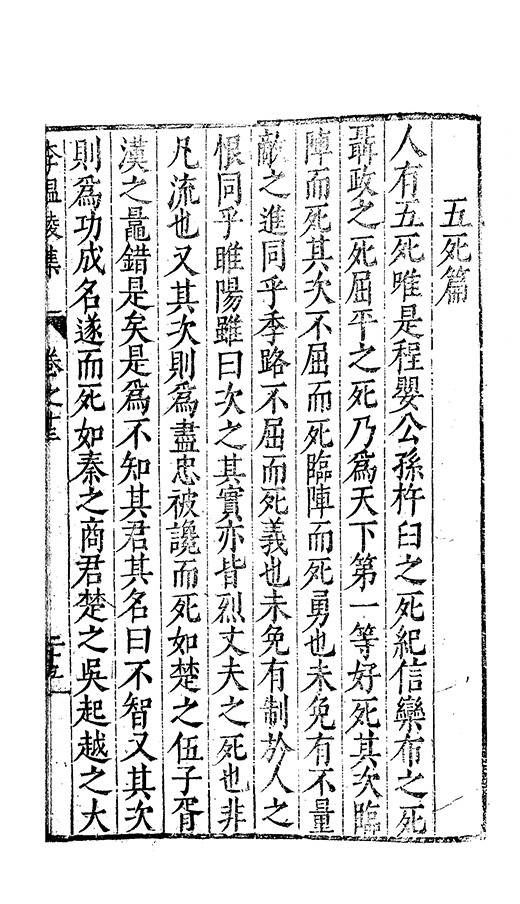 五死篇
人有五死唯是程嬰公孫杵臼之死紀信欒布之死
聶政之死屈平之死乃為天下第一等好死其次臨
陣而死其次不屈而死臨陣而死勇也未免有不量
敵之進同乎季路不屈而死義也未免有制於人之
恨同乎睢陽雖曰次之其實亦皆烈丈夫之死也非
凡流也又其次則為盡忠被讒而死如楚之伍子胥
漢之鼂錯是矣是為不知其君其名曰不智又其次
則為功成名遂而死如秦之商君楚之吳起越之大
李溫陵集 卷之十三 二十五